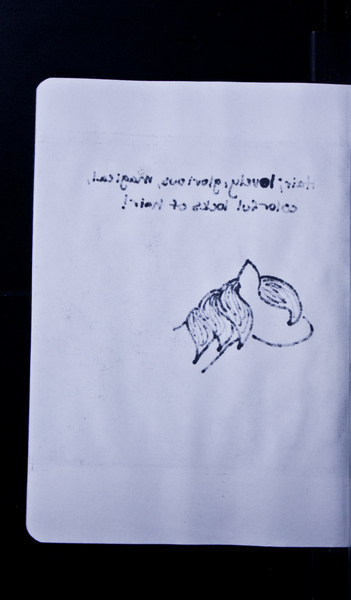 Hair; lovely, glorious, magical,
colorful locks of hair!